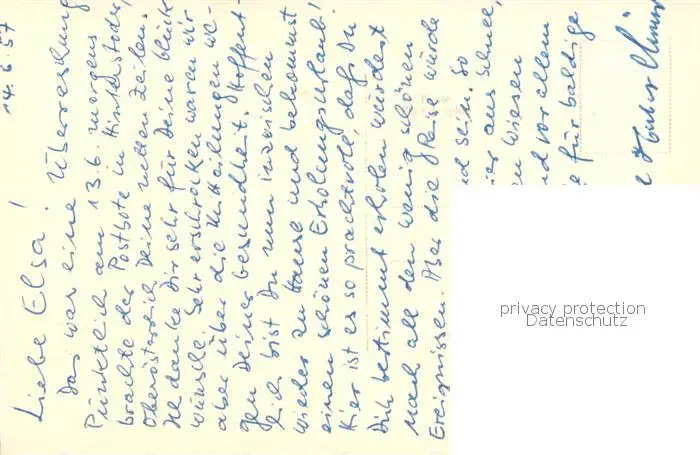 14.6.57
Liebe Elsa!
Das war eine Überraschung
Pünktlich am 13.6. morgens
brachte der Postbote in Hinterstoder,
Oberösterreich Deine netten Zeilen.
Ich danke Dir sehr für Deine Glück
wünsche. Sehr erschrocken waren wir
aber über die Mitteilungen we-
gen Deiner Gesundheit. Hoffent-
lich bist Du nun inzwischen
wieder zu Hause und bekommst
einen schönen Erholungsurlaub!
Hier ist es so prachtvoll, daß Du
Dich bestimmt erholen würdest
nach all den wenig schönen
Ereignissen. Aber die Reise würde
nd sein. So
er aus Schnee,
en Wiesen
nd vor allem
e für baldige
privacy protection
Datenschutz